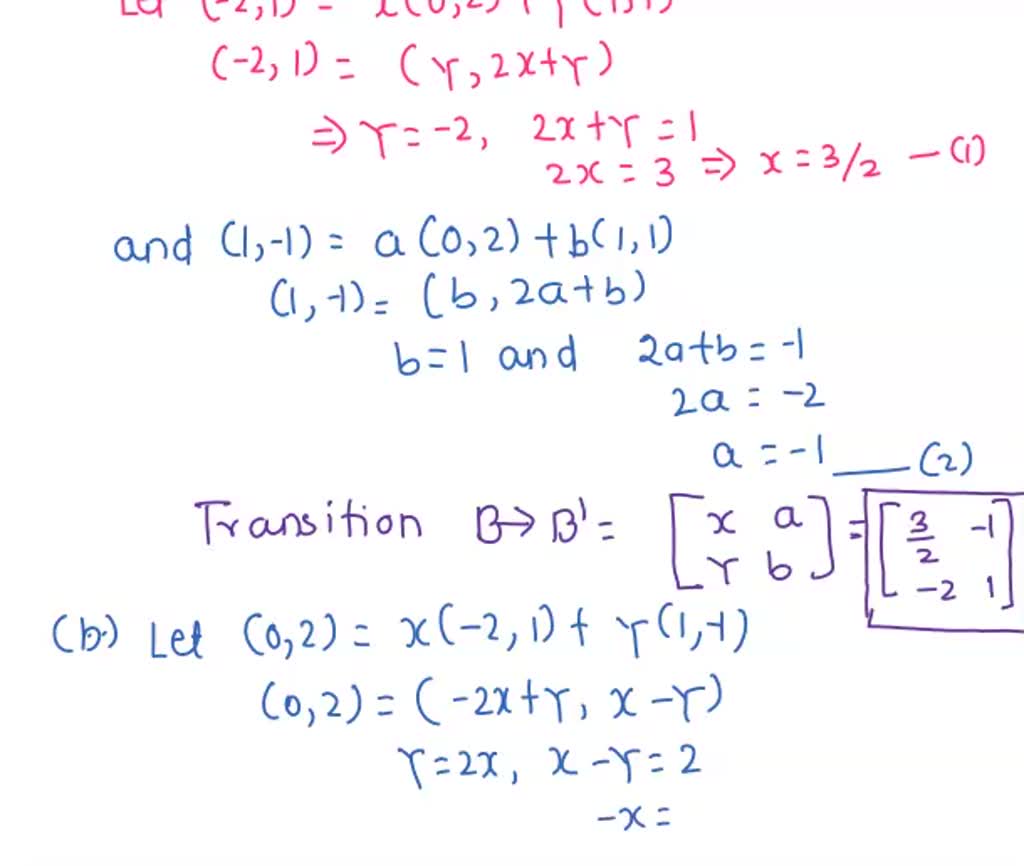 Let (-2,1) = x(0,2) + Y(1,1)
(-2,1) = (Y, 2x+Y)
⇒ Y = -2, 2x+Y = 1
2x = 3 ⇒ x = 3/2 — (1)
and (1,-1) = a(0,2)+b(1,1)
(1,-1) = (b, 2a+b)
b=1 and 2a+b = -1
2a = -2
a = -1 — (2)
Transition B→B' = [x a; Y b] = [3/2 -1; -2 1]
(b.) Let (0,2) = x(-2,1)+ Y(1,-1)
(0,2) = (-2x+Y, x-Y)
Y=2x, x-Y=2
-x =